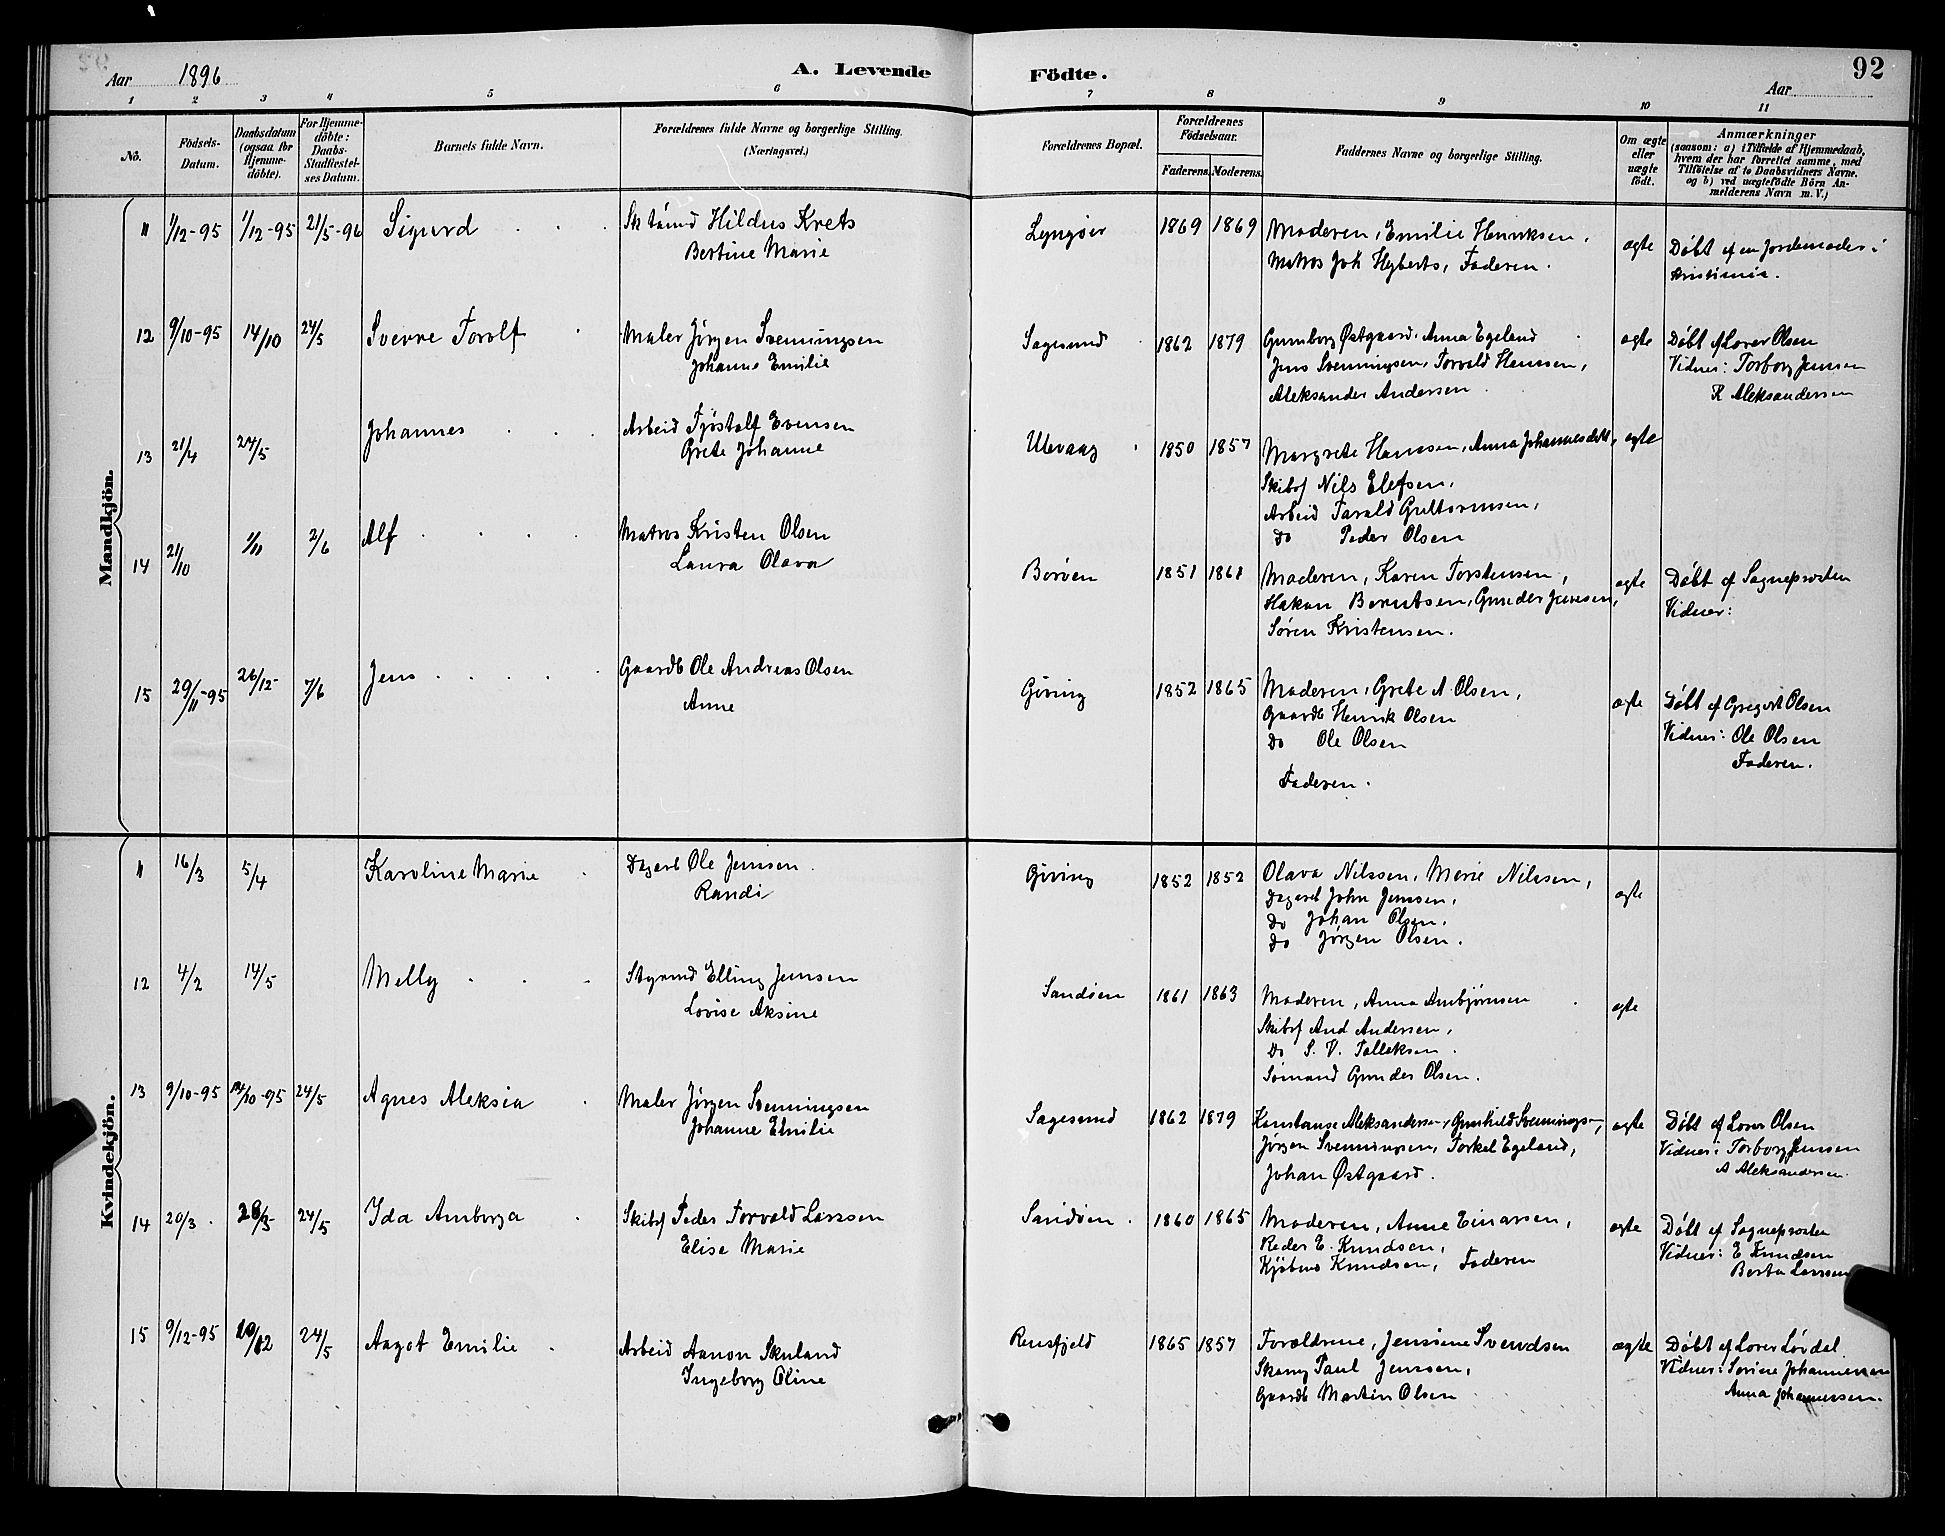 Aar 1896
A. Levende Födte.
92
Aar
1 2 3 4 5 6 7 8 9 10 11
No.
Födsels-Datum.
Daabsdatum (ogsaa for Hjemme-döbte).
For Hjemme-döbte: Daabs-Stadfæstel-ses Datum.
Barnets fulde Navn.
Forældrenes fulde Navne og borgerlige Stilling. (Næringsvei.)
Forældrenes Bopæl.
Forældrenes Födselsaar.
Faderens. Moderens.
Faddernes Navne og borgerlige Stilling.
Om ægte eller uægte födt.
Anmærkninger (saasom: a) i Tilfælde af Hjemmedaab, hvem der har forrettet samme, med Tilföielse af to Daabsvidners Navne. og b) ved uægtefödte Börn An-melderens Navn m. V.)
Mandkjön.
11 1/12-95 1/12-95 21/5-96 Sigurd
Hildus Krets
Bertine Marie
Lyngøer 1869 1869
Moderen, Emilie Henriksen,
Matros Joh Hyberts, Faderen.
ægte
Døbt af en Jordemoder i
Kristiania.
12 9/10-95 14/10 24/5 Sverre Torolf
Maler Jörgen Svenningsen
Johanne Emilie
Sagesund 1862 1879
Gunborg Østgaard, Anna Egeland
Jens Svenningsen, Torvald Hanssen,
Aleksander Andersen
ægte
Døbt af Lærer Olsen
Vidner: Torborg Jenssen
K Aleksandersen
13 21/4 24/5 Johannes
Arbeid Tjøstolf Evensen
Grete Johanne
Ulevaag 1850 1857
Margrete Hanssen, Anna Johannesdatt,
Skibsf Nils Elefsen,
Arbeid Tarald Guttormsen,
Do Peder Olsen
ægte
14 21/10 1/11 2/6 Alf
Matros Kristen Olsen
Laura Olava
Borøen 1851 1861
Moderen, Karen Torstensen,
Hakon Berntsen, Gunder Jenssen,
Søren Kristensen.
ægte
Døbt af Sogneprosten
Vidner:
15 29/11-95 26/12- 7/6 Jens
Gaardb Ole Andreas Olsen
Anne
Gjving 1852 1865
Moderen, Grete A. Olsen,
Gaardb Henrik Olsen
Do Ole Olsen
Faderen.
ægte
Døbt af Gregert Olsen
Vidner: Ole Olsen
Faderen.
Kvindekjön.
11 16/3 5/4 Karoline Marie
Dagarb Ole Jenssen.
Randi
Gjving 1852 1852
Olava Nilssen, Marie Nilssen,
Dagarb John Jenssen,
Do Johan Olsen,
Do Jørgen Olsen.
ægte
12 4/2 14/5 Melly
Styrmd Elling Jenssen
Lovise Aksine
Sandøen 1861 1863
Moderen, Anna Ambjørnsen
Skibsf And Andersen,
Do S. V. Tallaksen.
Sømand Gunder Olsen.
ægte
13 9/10-95 14/10-95 24/5 Agnes Aleksia
Maler Jörgen Svenningsen
Johanne Emilie
Sagesund 1862 1879
Konstanse Aleksandersen, Gunhild Svennings-,
Jörgen Svenningsen, Torkel Egeland,
Johan Østgaard.
ægte
Døbt af Lærer Olsen
Vidner: Torborg Jenssen
A Aleksandersen
14 20/3 24/5 Ida Amborga
Skibsf Peder Torvald Larssen
Elise Marie
Sandøen 1860 1865
Moderen, Anne Einarsen,
Reder E. Knudsen,
Kjøbmd Knudsen, Faderen
ægte
Døbt af Sogneprosten
Vidner: E Knudsen
Berta Larssen
15 9/12-95 24/5 Aagot Emilie
Arbeid Aanon Skuland
Ingeborg Oline
Rensfjeld 1865 1857
Forældrene, Jensine Svendsen
Paul Jenssen,
Gaardb Martin Olsen
ægte
Døbt af Lærer Løvdal
Vidner: Sørine Johannessen
Anna Johannessen.